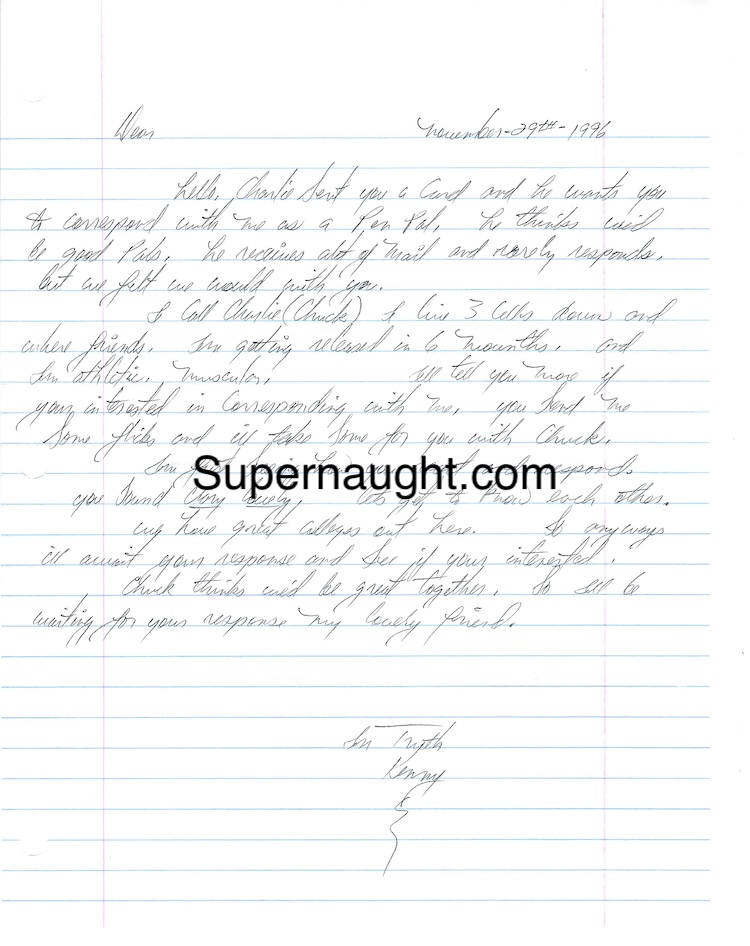 Dear November-29TH-1996
hello, Charlie Sent you a Card and he wants you
to correspond with me as a Pen Pal, he thinks wed
be good Pals, he receives alot of mail and rarely responds,
but we felt we would with you.
I Call Charlie (Chuck) I live 3 Cells down and
where friends. Im getting released in 6 mounths. and
Im athletic, muscular, ill tell you more if
your intrested in Corresponding with me, you Send me
Some flicks and ill take Some for you with Chuck.
Im
Supernaught.com
respond.
you Sound Very lovely, lets get to know each other.
we have great colleges out here. So anyways
ill await your response and See if your interested.
Chuck thinks wed be great together. So ill be
waiting for your response my lovely friend.
In Truth
Kenny